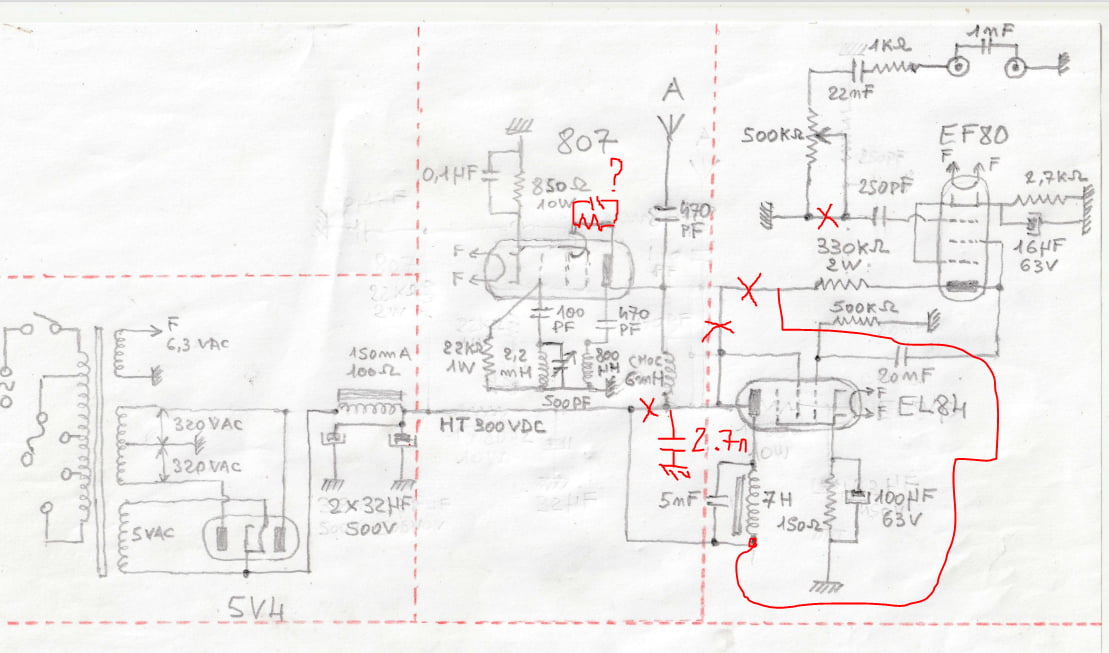 1nF
1KΩ
22nF
A
807
500KΩ
EF80
F F
0,1µF
850Ω
10W
?
470
PF
250PF
2,7KΩ
X
330KΩ
2W
16µF
63V
F
F
X
500KΩ
X
100
PF
470
PF
22KΩ
1W
2,2
mH
800
500PF
6mH
20mF
F
6,3 VAC
150mA
100Ω
X
F
F
EL84
320VAC
HT 300VDC
320VAC
2.7n
2X32µF
500V
5mF
7H
150Ω
100µF
63V
5VAC
5V4